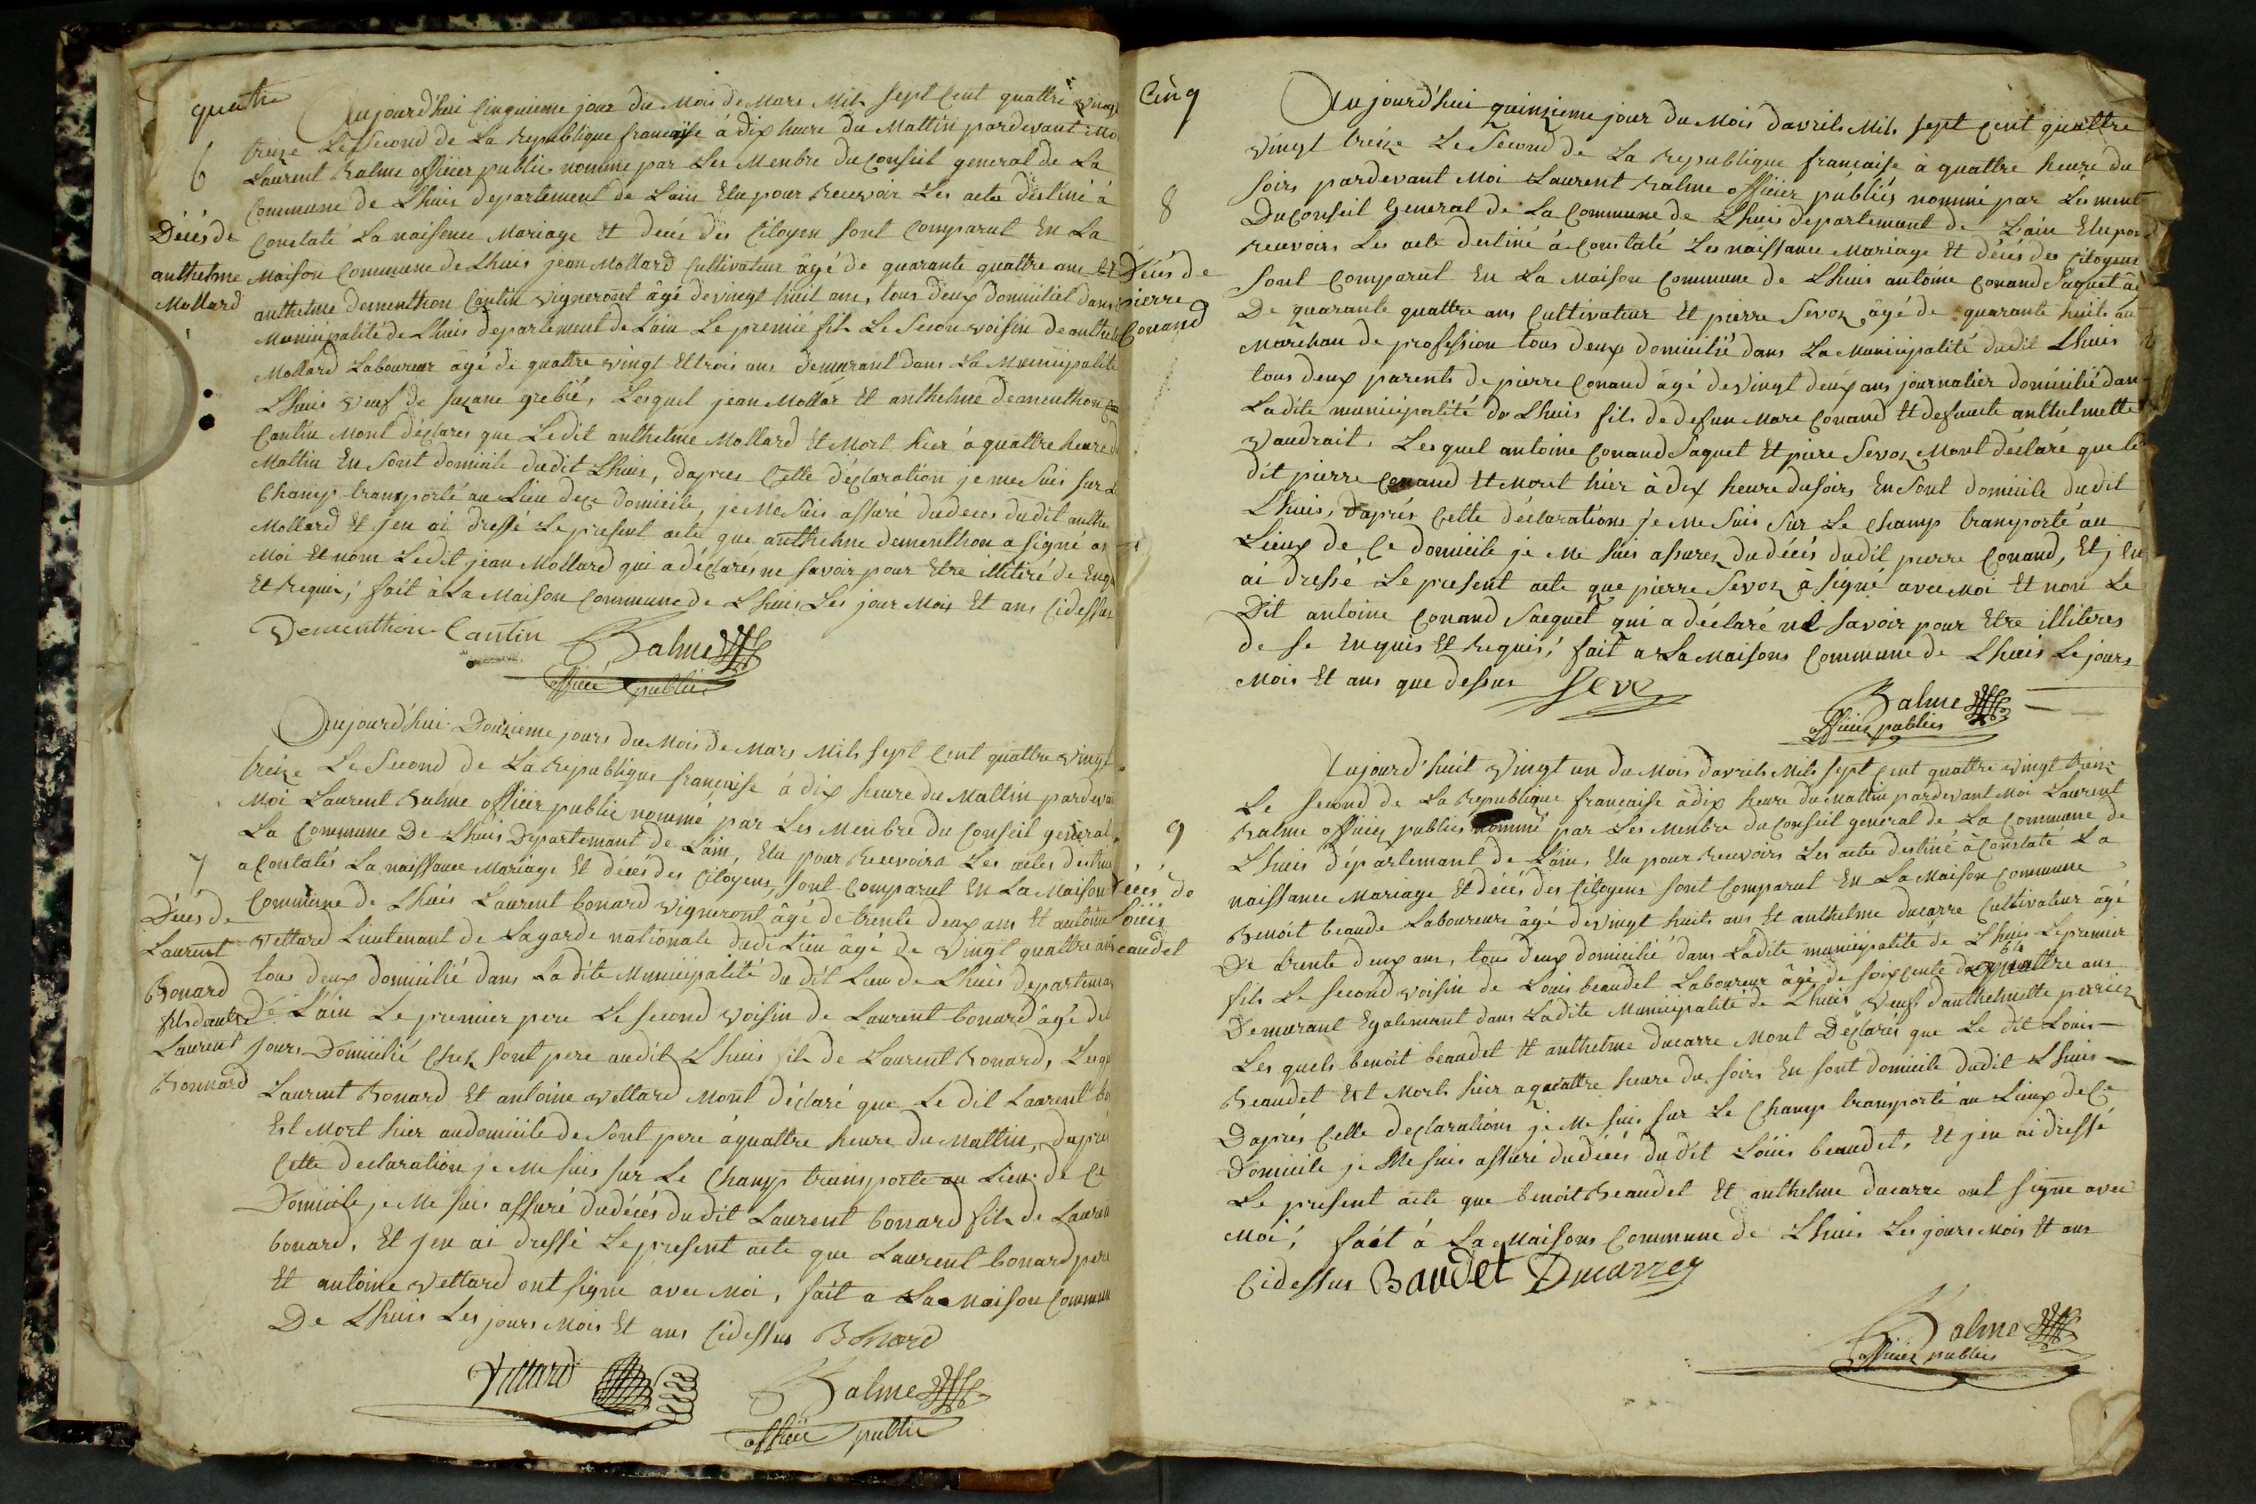 quatre
Aujourd'hui Cinquieme jour du Mois de Mars Mils sept Cent quattre vingt
treize Le second de La Republique francaise à dix heure du Mattin pardevant Moi
6
Laurent Balme officier public nommé par Les Menbre du Conseil general de La
Commune de Lhuis departement de Lain Elu pour Recevoir Les acte destiné à
Décés de
anthelme
Mollard
Constaté La naisence Mariage Et decé des Citoyen sont Comparut En La
Maison Commune de Lhuis jean Mollard Cultivateur âgé de quarante quattre ans Et
anthelme dementhon Cantin vigneront âgé de vingt huit ans, tous deux domicilié dans
Municipalité de Lhuis departement de Lain Le premié fils Le Secon voisin de anthelme
Mollard Laboureur âgé de quattre vingt Et trois ans demeurant dans La Municipalité
Lhuis veuf de suzane grebié, Lesquel jean Mollar Et anthelme dementhon
Cantin Mont déclares que Ledit anthelme Mollard Et Mort hier à quattre heure du
Mattin En sont domicile dudit Lhuis, dapres Cette déclaration je me suis sur Le
Champ transporté au Lieu de ce domicile, je Me suis assuré du deces dudit anthe
Mollard Et jen ai dressé Le present acte que anthelme dementhon a signé av
Moi Et nom Ledit jean Mollard qui a déclares ne savoir pour Etre illitiré de Enquis
Et Requis; fait à La Maison Commune de Lhuis Les jour Mois Et ans Cidessus
Dementhon Cantin Balme
officie public
Aujourd'hui Douzieme jours du Mois de Mars Mils sept Cent quattre vingt
treize Le Second de La Republique francaise à dix heure du Mattin pardevant
Moi Laurent Balme officier public nommé par Les Menbre du Conseil general
La Commune De Lhuis Departemant de Lain, Elu pour Recevoirs Les actes destiné
7
a Constatés La naissance Mariage Et décés des Citoyens, sont Comparut En La Maison
Décés de
Laurent
Bonard
fils dautre
Laurent
Bonnard
Commune de Lhuis Laurent bonard vigneront âgé de trente deux ans Et antoine
vettard Lieutenant de La garde nationale dudi Lieu âgé de vingt quattre ans
tous deux domicilié dans Ladite Municipalité du dit Lieu de Lhuis departemant
de Lain Le premier pere Le second voisin de Laurent bonard âgé de
jours Domicilié Chez sont pere audit Lhuis fils de Laurent Bonard, Lesquel
Laurent Bonard Et antoine vettard Mont déclaré que Le dit Laurent bo
Est Mort hier audomicile de sont pere à quattre heure du Mattin, daprés
Cette declaration je Me suis sur Le Champ transporte au Lieu de Ce
Domicile je Me suis assuré du décés dudit Laurent bonard fils de Laurent
bonard, Et jen ai dressé Le present acte que Laurent bonard pere
Et antoine vettard ont signe avec Moi, fait a La Maison Commun
De Lhuis Les jours Mois Et ans Cidessus Bonard
Vettard Balme
officie public
Cinq
Aujourd'hui quinzieme jour du Mois davrils Mils sept Cent quattre
vingt treize Le Second de La Republique francaise à quattre heure du
soirs pardevant Moi Laurent Balme officier publiés nommé par Les ment
8
Du Conseil General de La Commune de Lhuis departement de Lain Elu pour
recevoirs Les acte destiné à Constaté Les naissance Mariage Et décés des Citoyens
Décés de
pierre
Conand
sont Comparut En La Maison Commune de Lhuis antoine Conand Saquet âg
De quarante quattre ans Cultivateur Et pierre Sevoz âgé de quarante huit an
Marchau de profession tous deux domicilié dans La Municipalité dudit Lhuis
tous deux parents de pierre Conand âgé de vingt deux ans journalier domicilié dan
Ladite municipalité de Lhuis fils de defun Marc Conand Et defuncte anthelmette
vaudrait. Lesquel antoine Conand Saquet Et piere Sevoz Mont déclaré que le
dit pierre Conand Et Mort hier à dix heure du soirs En sont domicile dudit
Lhuis, daprés Cette déclarations je Me suis sur Le Champ transporté au
Lieux de Ce domicile je Me suis assurez du décés dudit pierre Conand, Et jen
ai dressé Le present acte que pierre Sevoz à signé avec Moi Et non Le
Dit antoine Conand Sacquet qui a déclaré ne savoir pour Etre illiteres
de se Enquis Et Requis; fait a La Maisons Commune de Lhuis Le jours
Mois Et ans que dessus Seve
Balme
officier publics
Aujourd'huit vingt un du Mois davrils Mils sept Cent quattre vingt treize
Le second de La Republique francaise à dix heure du Mattin pardevant Moi Laurent
9
Balme officier publics nommé par Les Menbre du Conseil general de La Commune de
Lhuis départemant de Lain, Elu pour Recevoirs Les acte destiné à Constaté La
Décés de
Loüis
beaudet
naissance Mariage Et décés des Citoyens sont Comparut En La Maison Commune
Benoit beaude Laboureurs âgé de vingt huits ans Et anthelme ducarre Cultivateur âgé
De trente deux ans, tous deux domicilié dans Ladite municipalité de Lhuis Le premier
fils Le second voisin de Louis beaudet Laboureur âgé de soixcente quattre ans
Demeurant Egalemant dans Ladite Municipalité de Lhuis veuf danthelmette perrier
Les quels benoit beaudet Et anthelme ducarre Mont Déclarés que Le dit Louis
Beaudet Est Mort hier a quattre heure du soirs En sont domicile dudit Lhuis
Daprés Cette declarations je Me suis sur Le Champ transporté au Lieux de Ce
Domicile je Me suis assuré du décés du dit Loüis beaudet, Et jen ai dressé
Le present acte que benoit Beaudet Et anthelme ducarre ont signe avec
Moi; fait à La Maisons Commune de Lhuis Les jours Mois Et ans
Cidessus Baudet Ducarre
Balme
officier publics